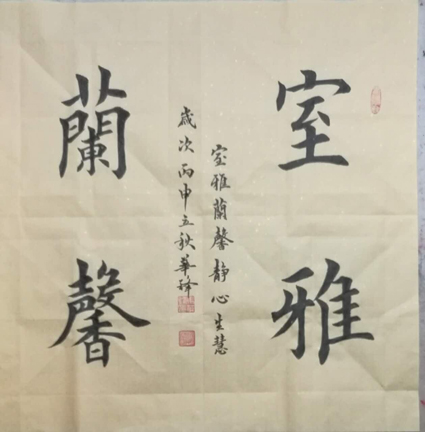 室雅
蘭馨
室雅蘭馨靜心生慧
歲次丙申立秋華